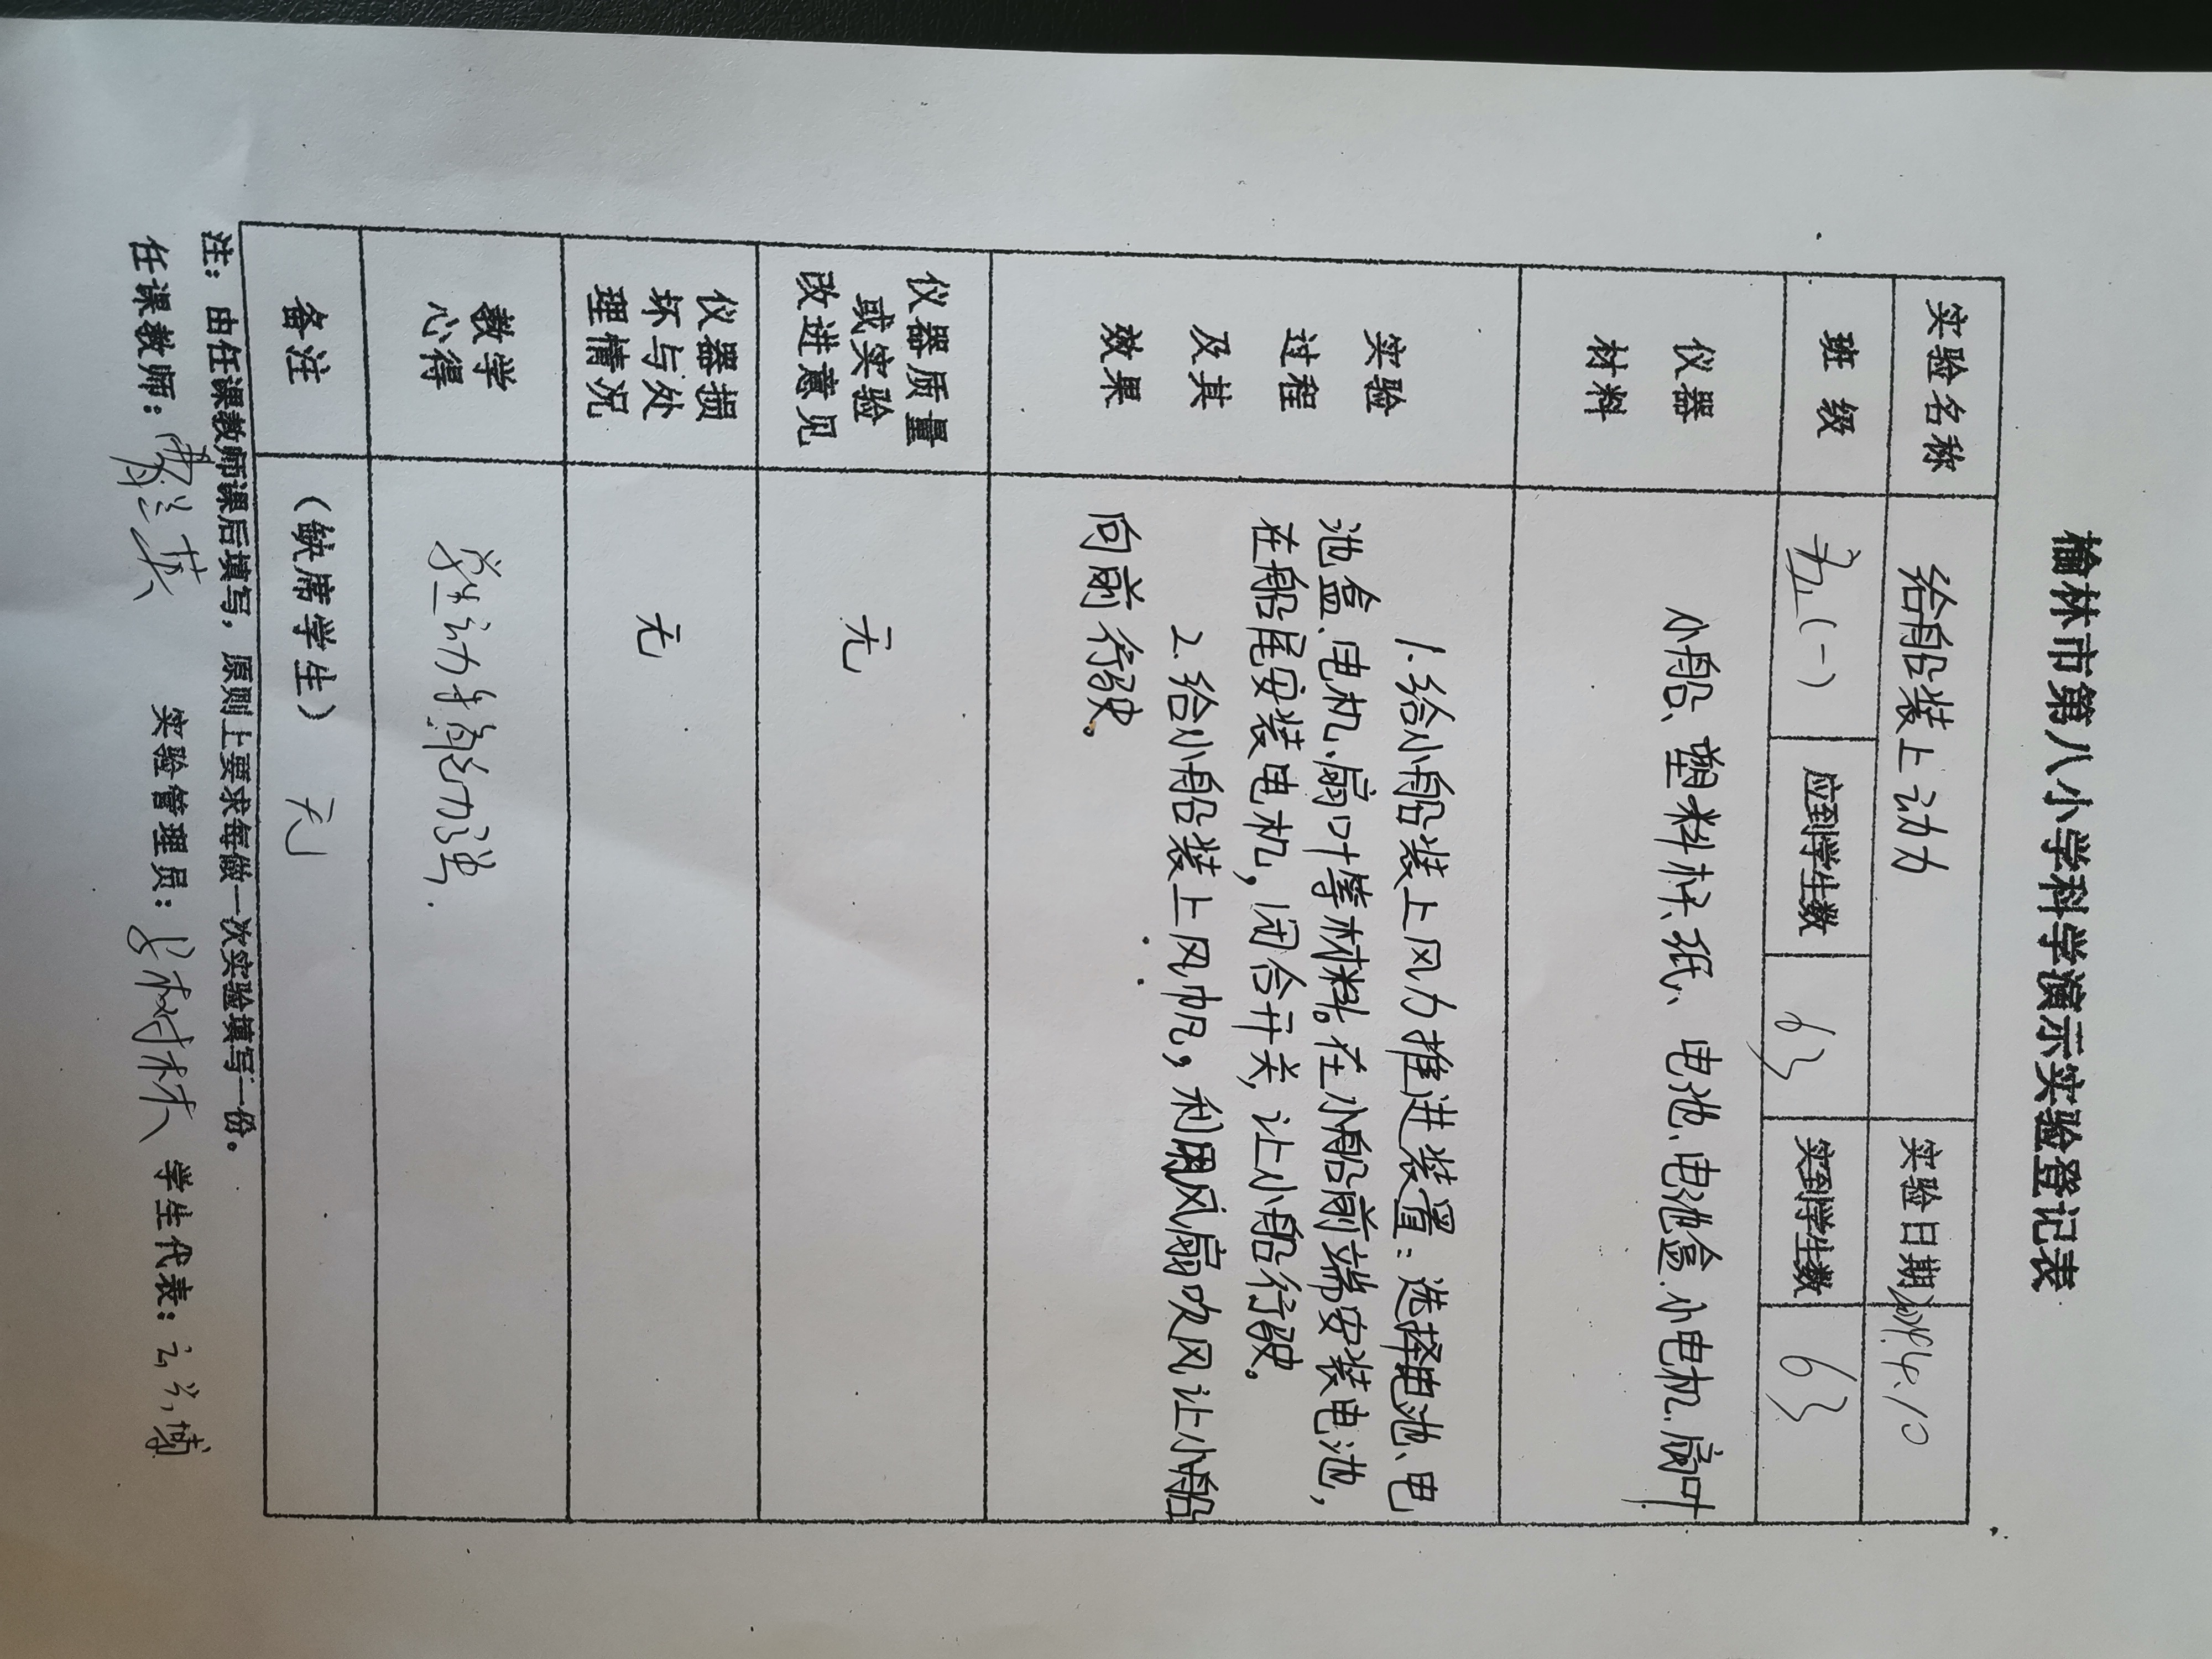 榆林市第八小学科学演示实验登记表
实验名称 给船装上动力 实验日期 4.10
班 级 五(一) 应到学生数 63 实到学生数 63
仪器
材料
小船、塑料杯、纸、电池、电池盒、小电机、扇叶
实验
过程
及其
效果
1.给小船装上风力推进装置：选择电池、电
池盒、电机、扇叶等材料。在小船前端安装电池，
在船尾安装电机，闭合开关，让小船行驶。
2.给小船装上风帆，利用风扇吹风让小船
向前行驶。
仪器质量
或实验
改进意见
无
仪器损
坏与处
理情况
无
教学
心得
学生动手能力强.
备注 （缺席学生） 无
注：由任课教师课后填写，原则上要求每做一次实验填写一份。
任课教师： 实验管理员： 学生代表：